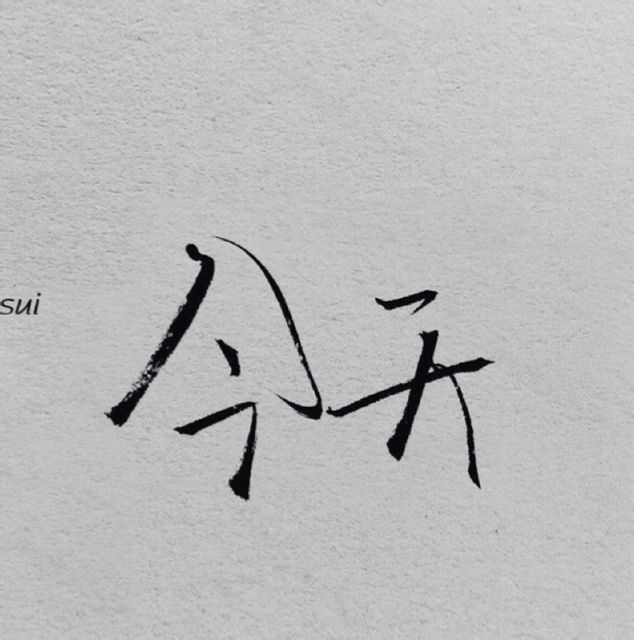 sui
今天